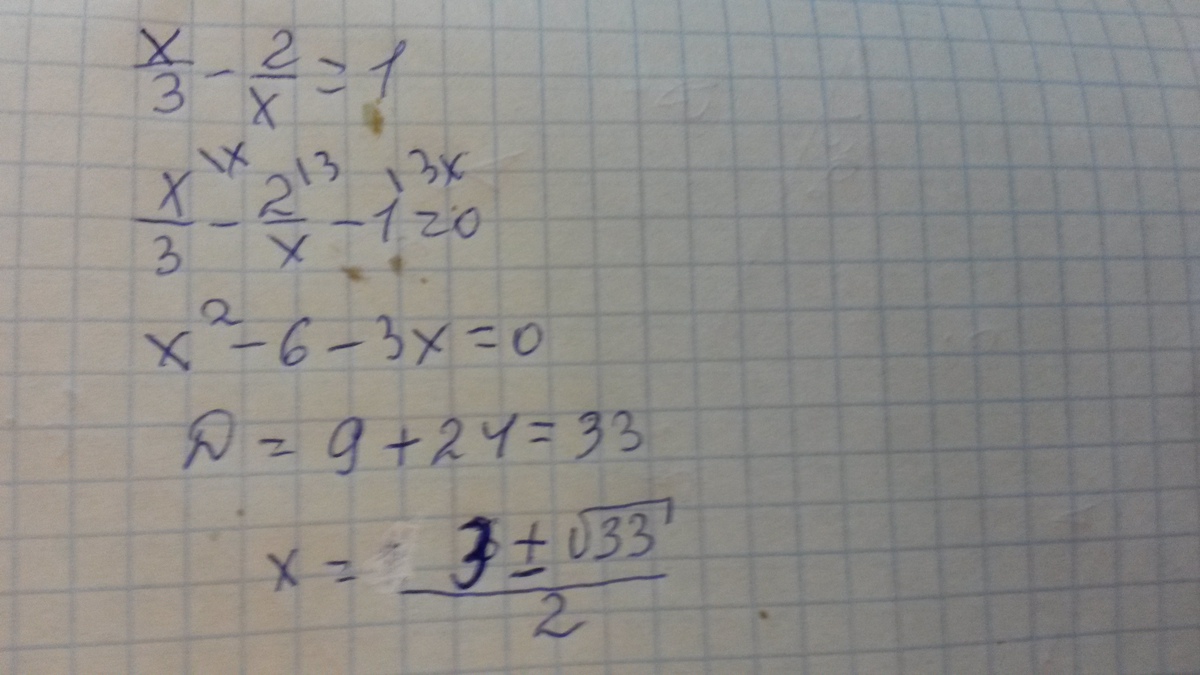 x/3 - 2/x = 1
x\x/3 - 2\3/x - 1\3x = 0
x² - 6 - 3x = 0
D = 9 + 24 = 33
x = 3 ± √33/2